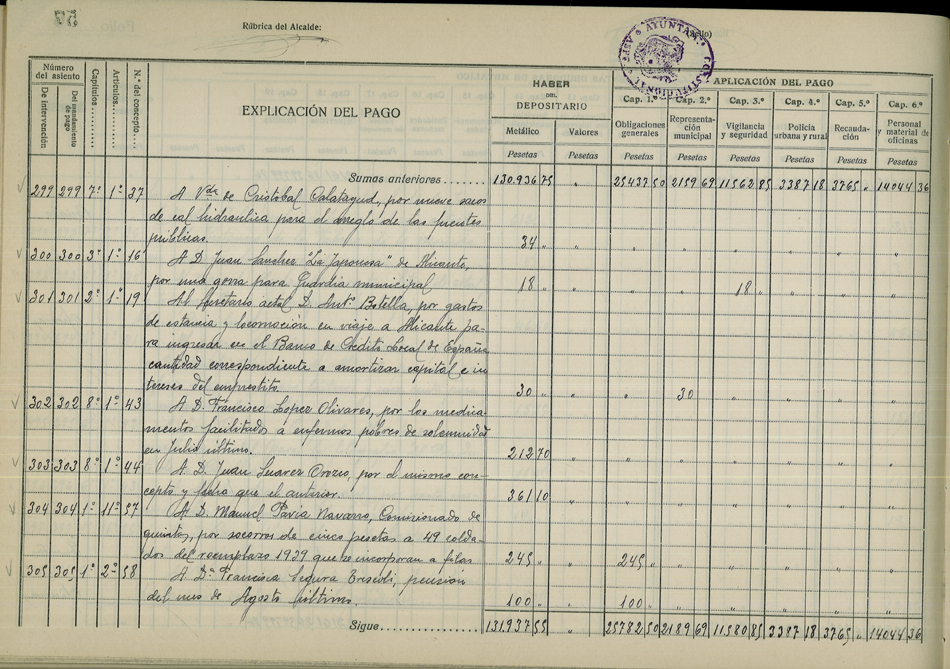 Rúbrica del Alcalde:
(Sello)
AYUNTAM.
CONSTITUCIONAL
ASPE
Número del asiento
De intervención
Del mandamiento de pago
Capítulos
Artículos
N.º del concepto
EXPLICACIÓN DEL PAGO
HABER DEL DEPOSITARIO
Metálico Valores
Pesetas Pesetas
APLICACIÓN DEL PAGO
Cap. 1.º Cap. 2.º Cap. 3.º Cap. 4.º Cap. 5.º Cap. 6.º
Obligaciones generales
Representación municipal
Vigilancia y seguridad
Policía urbana y rural
Recaudación
Personal y material de oficinas
Pesetas Pesetas Pesetas Pesetas Pesetas Pesetas
Sumas anteriores 130.936 75 " 25437 50 2159 69 11562 85 3387 18 3765 " 14044 36
299 299 7º 1º 37 A Vda de Cristobal Calatayud, por nueve sacos
de cal hidraulica para el arreglo de las fuentes
públicas. 34 "
300 300 3º 1º 16 A D. Juan Sanchez "La Japonesa" de Alicante,
por una gorra para Guardia municipal 18 " 18 "
301 301 2º 1º 19 Al Secretario actal D. Antº Botella, por gastos
de estancia y locomoción en viaje a Alicante pa-
ra ingresar en el Banco de Crédito Local de España
cantidad correspondiente a amortizar capital e in
tereses del emprestito. 30 " 30 "
302 302 8º 1º 43 A D. Francisco Lopez Olivares, por los medica-
mentos facilitados a enfermos pobres de solemnidad
en Julio último. 212 70
303 303 8º 1º 44 A D. Juan Suarez Orozco, por el mismo con-
cepto y fecha que el anterior. 361 10
304 304 1º 11º 57 A D. Manuel Pavia Navarro, Comisionado de
quintas, por socorros de cinco pesetas a 49 solda-
dos del reemplazo 1939 que se incorporan a filas 245 " 245 "
305 305 1º 2º 58 A Dª Francisca Segura pension
del mes de Agosto último. 100 " 100 "
Sigue 131.937 55 " 25782 50 2189 69 11580 85 3387 18 3765 " 14044 36